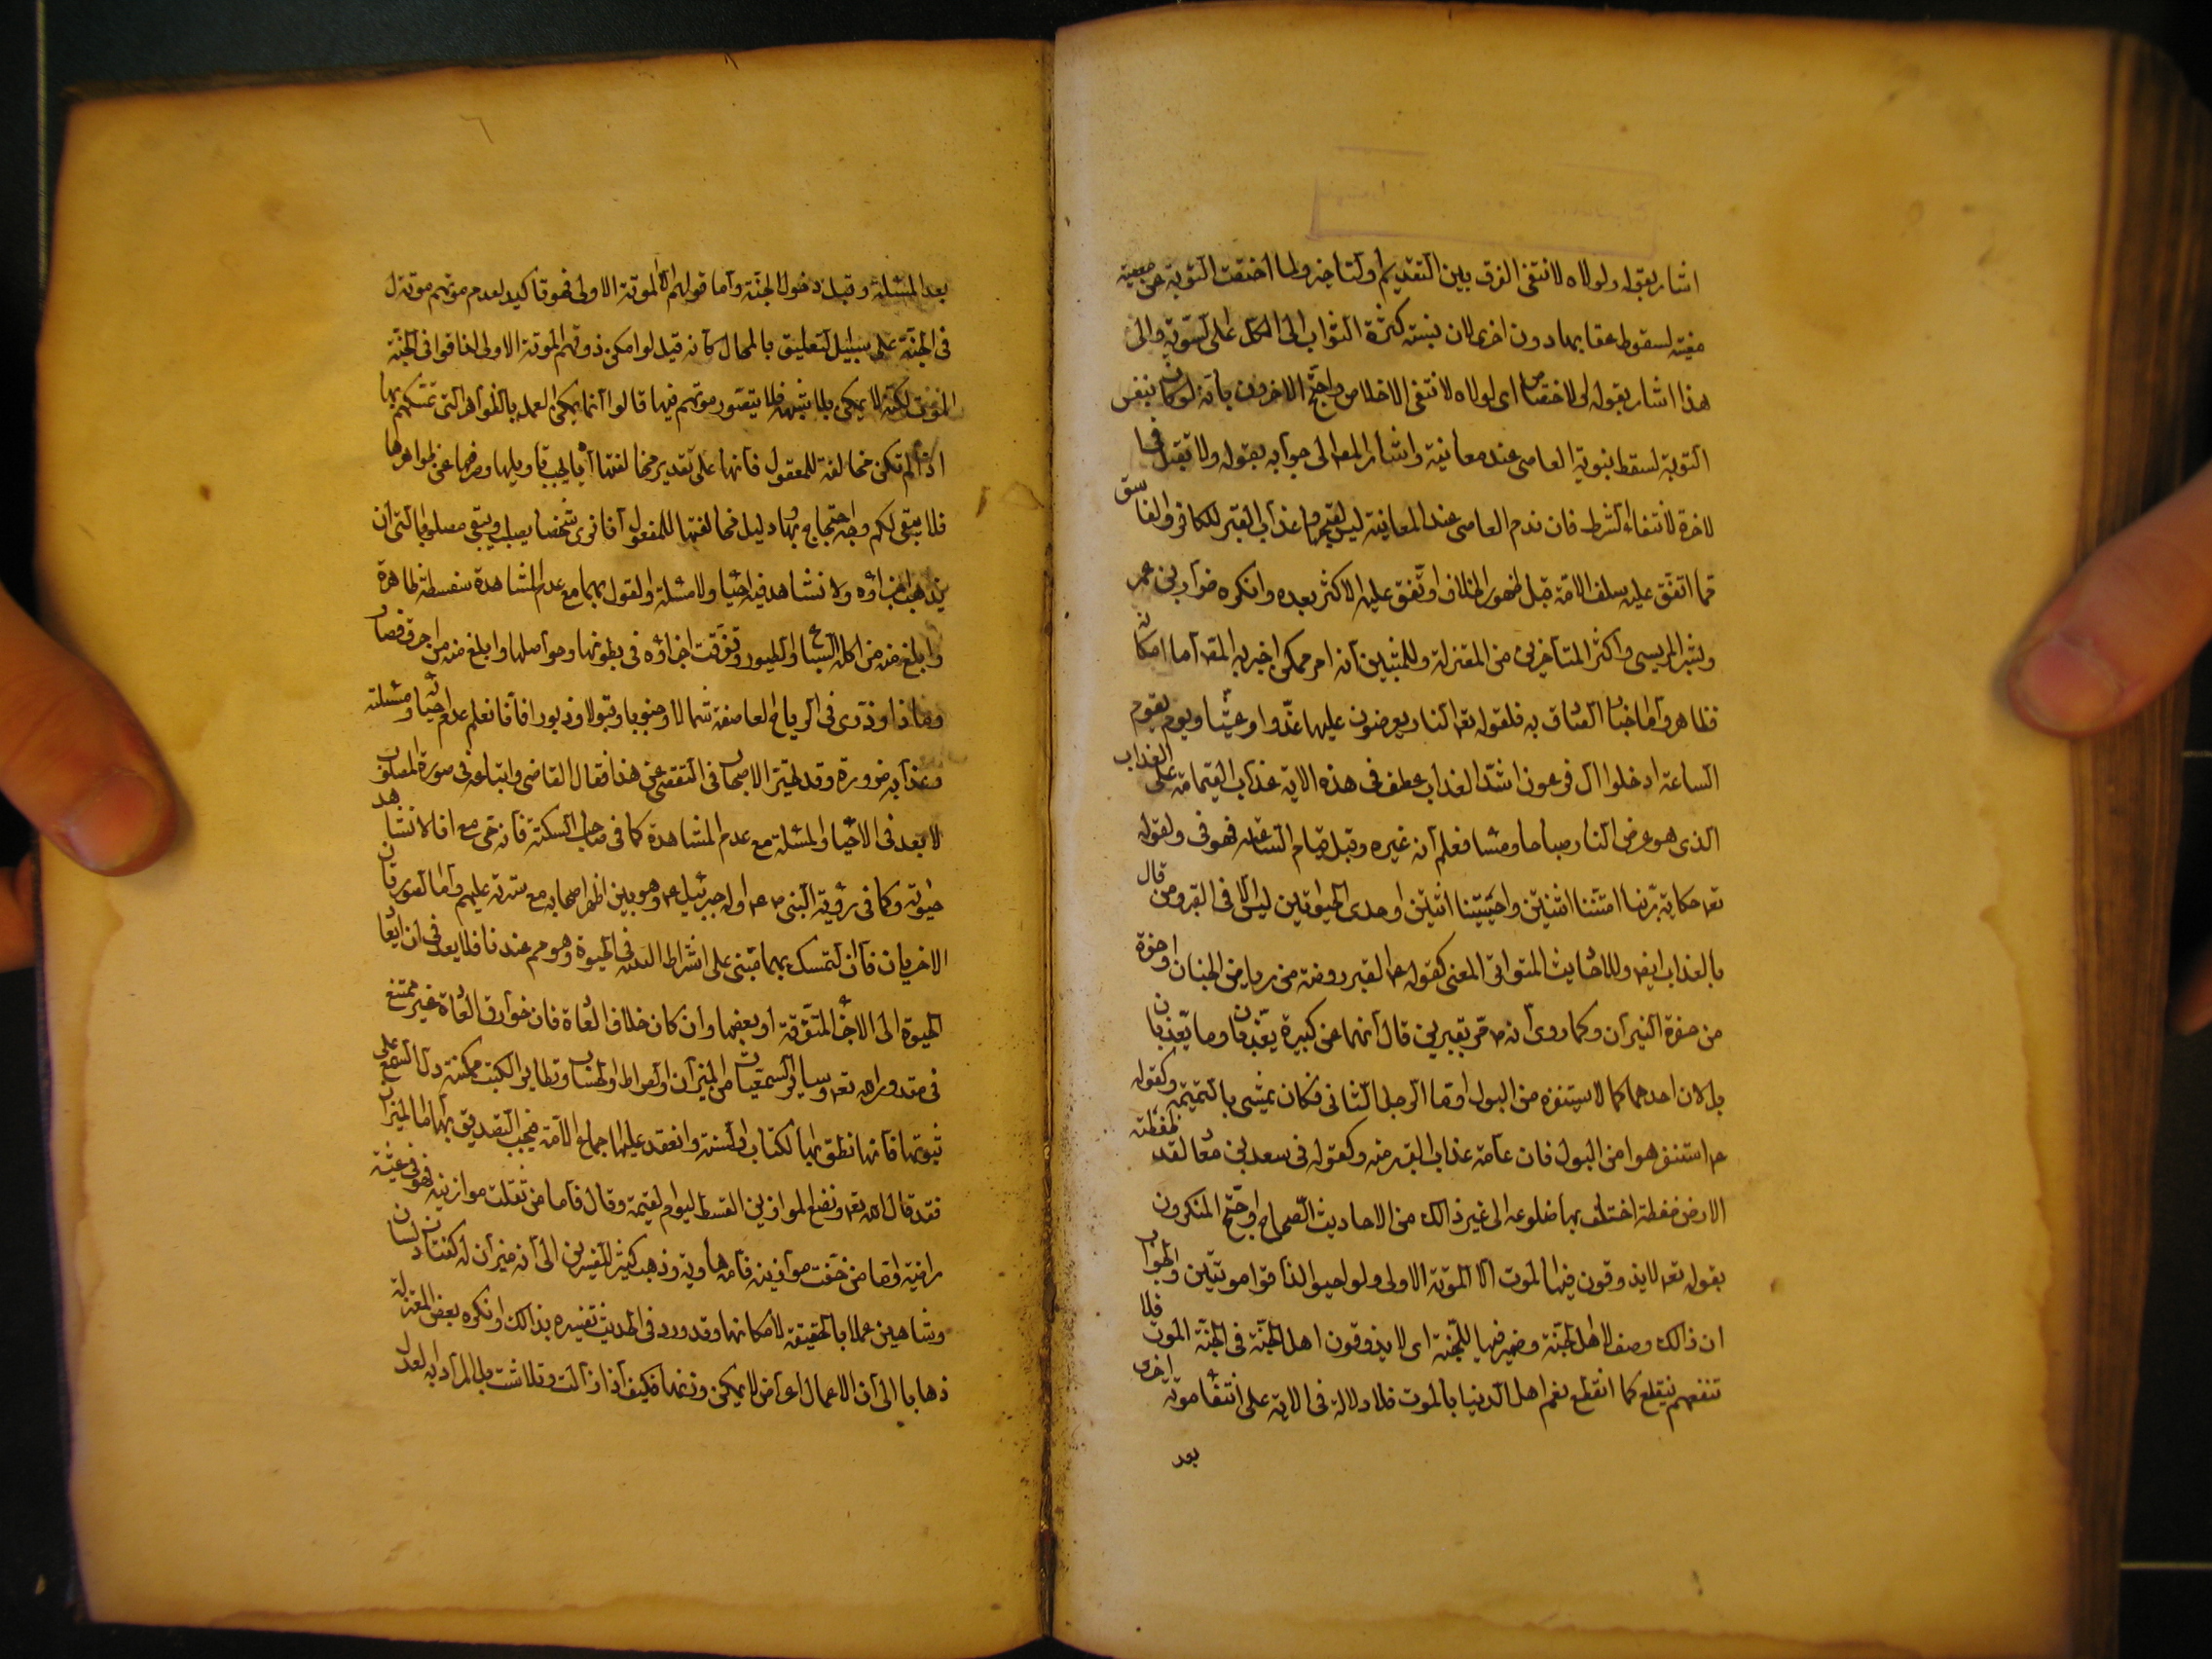 اشار بقوله ولولاه لانتفى الفرق بين التقديم والتاخر ولما اختصت التوبة عن معصية
معينة لسقوط عقابها دون اخرى لان نسبة كثرة الثواب الى الكل على السوية والى
هذا اشار بقوله لى لاختصاص اى لولاه لانتفى الاختصاص واحتج الاخرون بانه لو كان بنفس
التوبة لسقط بتوبة العاصى عند معاينة واشار المص الى جوابه بقوله ولا تقبل فى ا
لاخرة لانتفاء الشرط فان ندم العاصى عند المعاينة ليس لقبح وعذاب القبر للكافر والفاسق
مما اتفق عليه سلف الامة قبل ظهور الخلاف واتفق عليه الاكثر بعده وانكره ضرار بن عمر
وبشر المريسى واكثر المتأخرين من المعتزلة وللمثبتين انه امر ممكن اخبر به اما امكانه
فظاهر واما اخبار الصادق به فلقوله تعم النار يعرضون عليها غدوا وعشيا ويوم يقوم
الساعة ادخلوا ال فرعون اشد العذاب عطف فى هذه الاية عذاب القيمة على العذاب
الذى هو عرض النار صباحا ومساء فعلم انه غيره وقبل قيام الساعة فهو فى ولقوله
تعم حكاية ربنا امتنا اثنتين واحييتنا اثنتين واحدى الحيوتين ليس الا فى القبر ومن قال
بالعذاب ايضا وللاحاديث المتواترة المعنى كقوله ص القبر روضة من رياض الجنان وحفرة
من حفرة النيران وكما روى انه ص مر بقبرين قال انهما عن كبيرة يعذبان وما يعذبان
بل لان احدهما كما لا يستنزه من البول اما الرجل الثانى فكان يمشى بالنميمة وكقوله
ص استنزهوا من البول فان عامة عذاب القبر منه وكقوله فى سعد بن معاذ لقد ضغطته
الارض ضغطة اختلف بها ضلوعه الى غير ذالك من الاحاديث الصحاح واحتج المنكرون
بقوله تعم لا يذوقون فيها الموت الا الموتة الاولى ولو احيوا لذاقوا موتتين والجواب
ان ذالك وصف لاهل الجنة وضمير فيها للجنة اى لا يذوقون اهل الجنة فى الجنة الموت فلا
تنعمهم ينقطع كما انقطع نعم اهل الدنيا بالموت فلا دلالة فى الاية على انتفاء موتة اخرى
بعد
بعد المسئلة وقبل دخول الجنة واما قولهم الا الموتة الاولى فهو تاكيد لعدم موتهم
فى الجنة على سبيل التعليق بالمحال كانه قيل لو امكن ذوقهم الموتة الاولى لذاقوا فى الجنة
الموت لكنه لا يمكن بلا شبهة فلا يتصور موتهم فيها قالوا انما يمكن العمل بالظواهر التى تمسكتم بها
اذا لم تكن مخالفة للمعقول فانها على تقدير مخالفتها اياه يجب تأويلها وصرفها عن ظواهرها
فلا يبقى لكم وجه احتجاج بها ودليل مخالفتها للمعقول انا نرى شخصا يصلب ويبقى مصلوبا الى ان
يذهب اجزاؤه ولا نشاهد فيه احياء ولا مسئلة والقول بهما مع عدم المشاهدة سفسطة ظاهرة
وابلغ منه من اكله السباع والطيور وتفرقت اجزاؤه فى بطونها وحواصلها وابلغ منه من احرق فصار
رمادا وذرى فى الرياح العاصفة شمالا وجنوبا وقبولا ودبورا فانا نعلم عدم احيائه ومسئلته
وعذابه ضرورة وقد تحير الاصحاب فى التفصى عن هذا فقال القاضى واتباعه فى صورة المصلوب
لا بعد فى الاحياء والمسئلة مع عدم المشاهدة كما فى صاحب السكتة فانه حى مع انا لا نشاهد
حيوته وكما فى رؤية النبى ص جبرئيل ع وهو بين اظهر اصحابه مع ستره عليهم واما الصورتان
الاخريان فان التمسك بهما مبنى على اشتراط البنية فى الحيوة وهو مم عندنا فلا بعد فى ان ايقاع
الحيوة الى الاجزاء المتفرقة او بعضها وان كان خلاف العادة فان خوارق العادة غير ممتنع
فى مقدور الله تعم وسائر السمعيات من الميزان والصراط والحساب وتطاير الكتب ممكنة دل السمع على
ثبوتها فانها نطق بها الكتاب والسنة وانعقد عليها اجماع الامة فيجب التصديق بها اما الميزان
فقد قال الله تعم ونضع الموازين القسط ليوم القيمة وقال فاما من ثقلت موازينه فهو فى عيشة
راضية واما من خفت موازينه فامه هاوية وذهب كثير المفسرين الى انه ميزان له كفتان ولسان
وشاهين عملا بالحقيقة لامكانها وقد ورد فى الحديث تفسيره بذالك وانكره بعض المعتزلة
ذهابا الى ان الاعمال اعراض لا يمكن وزنها فكيف اذا زالت وتلاشت بل المراد به العدل